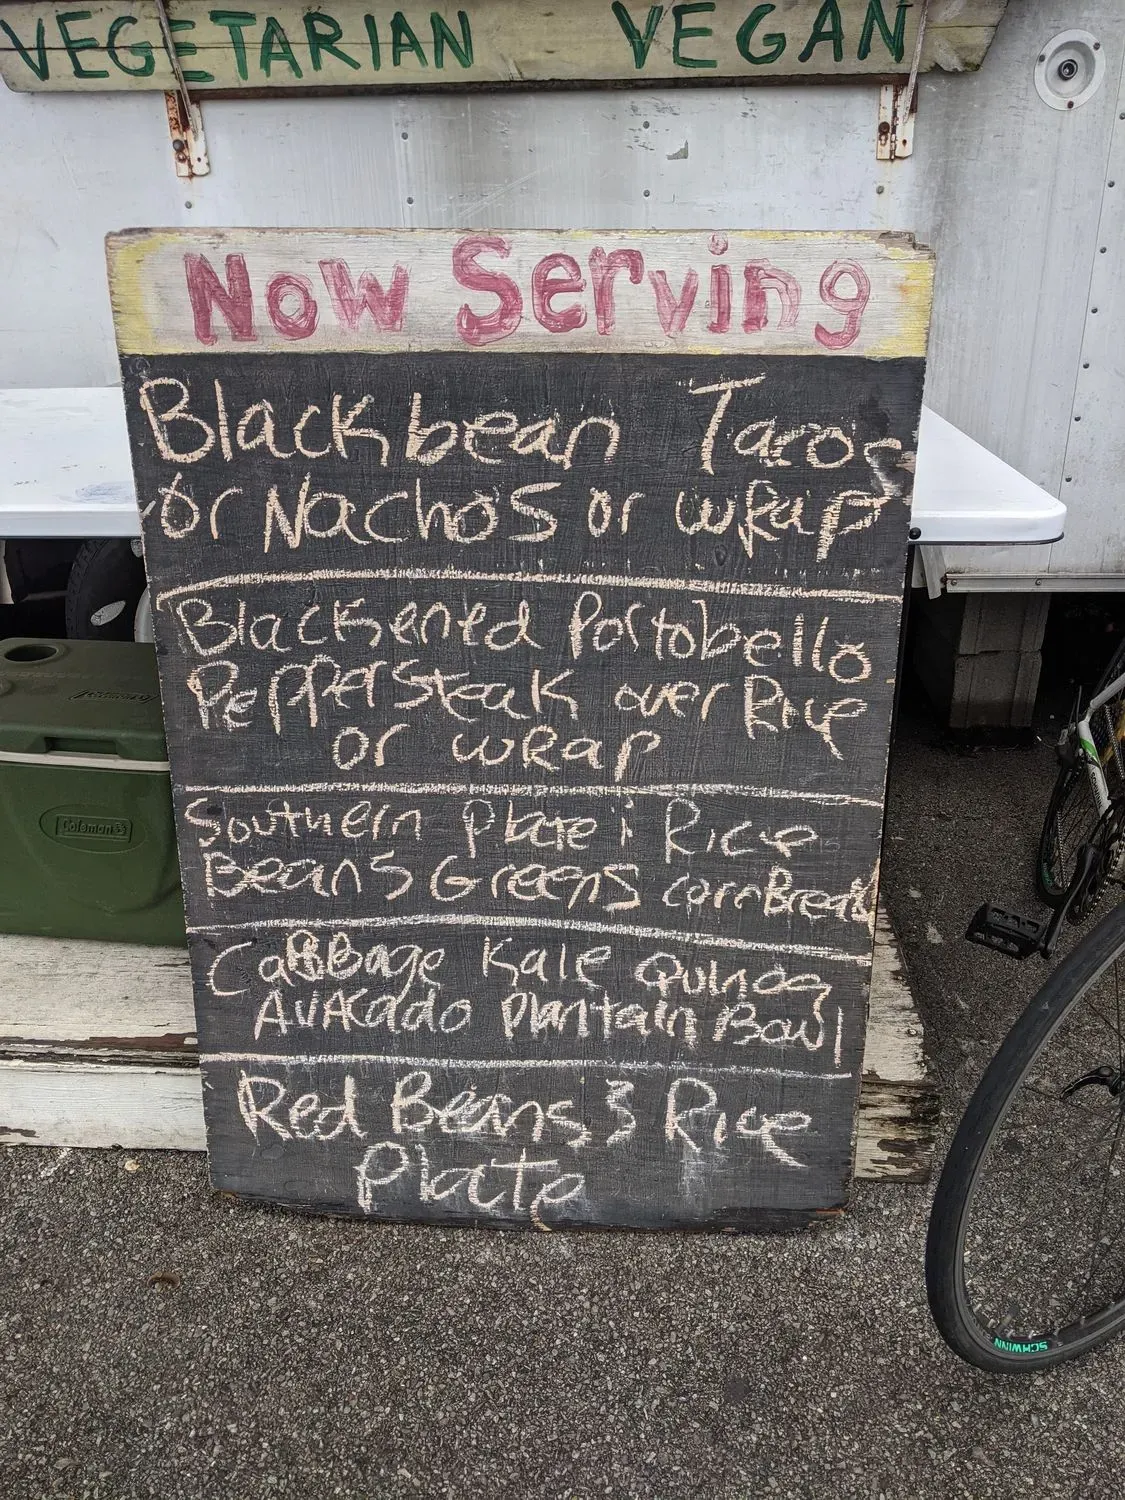 VEGETARIAN VEGAN
Now Serving
Blackbean Tacos
or Nachos or wRap
Blackened Portobello
PepperSteak over Rice
or wRap
Southern Plate : Rice
Beans Greens cornBread
CaBBage Kale Quinoa
AvAKado Plantain Bowl
Red Beans & Rice
Plate
Coleman
SCHWINN